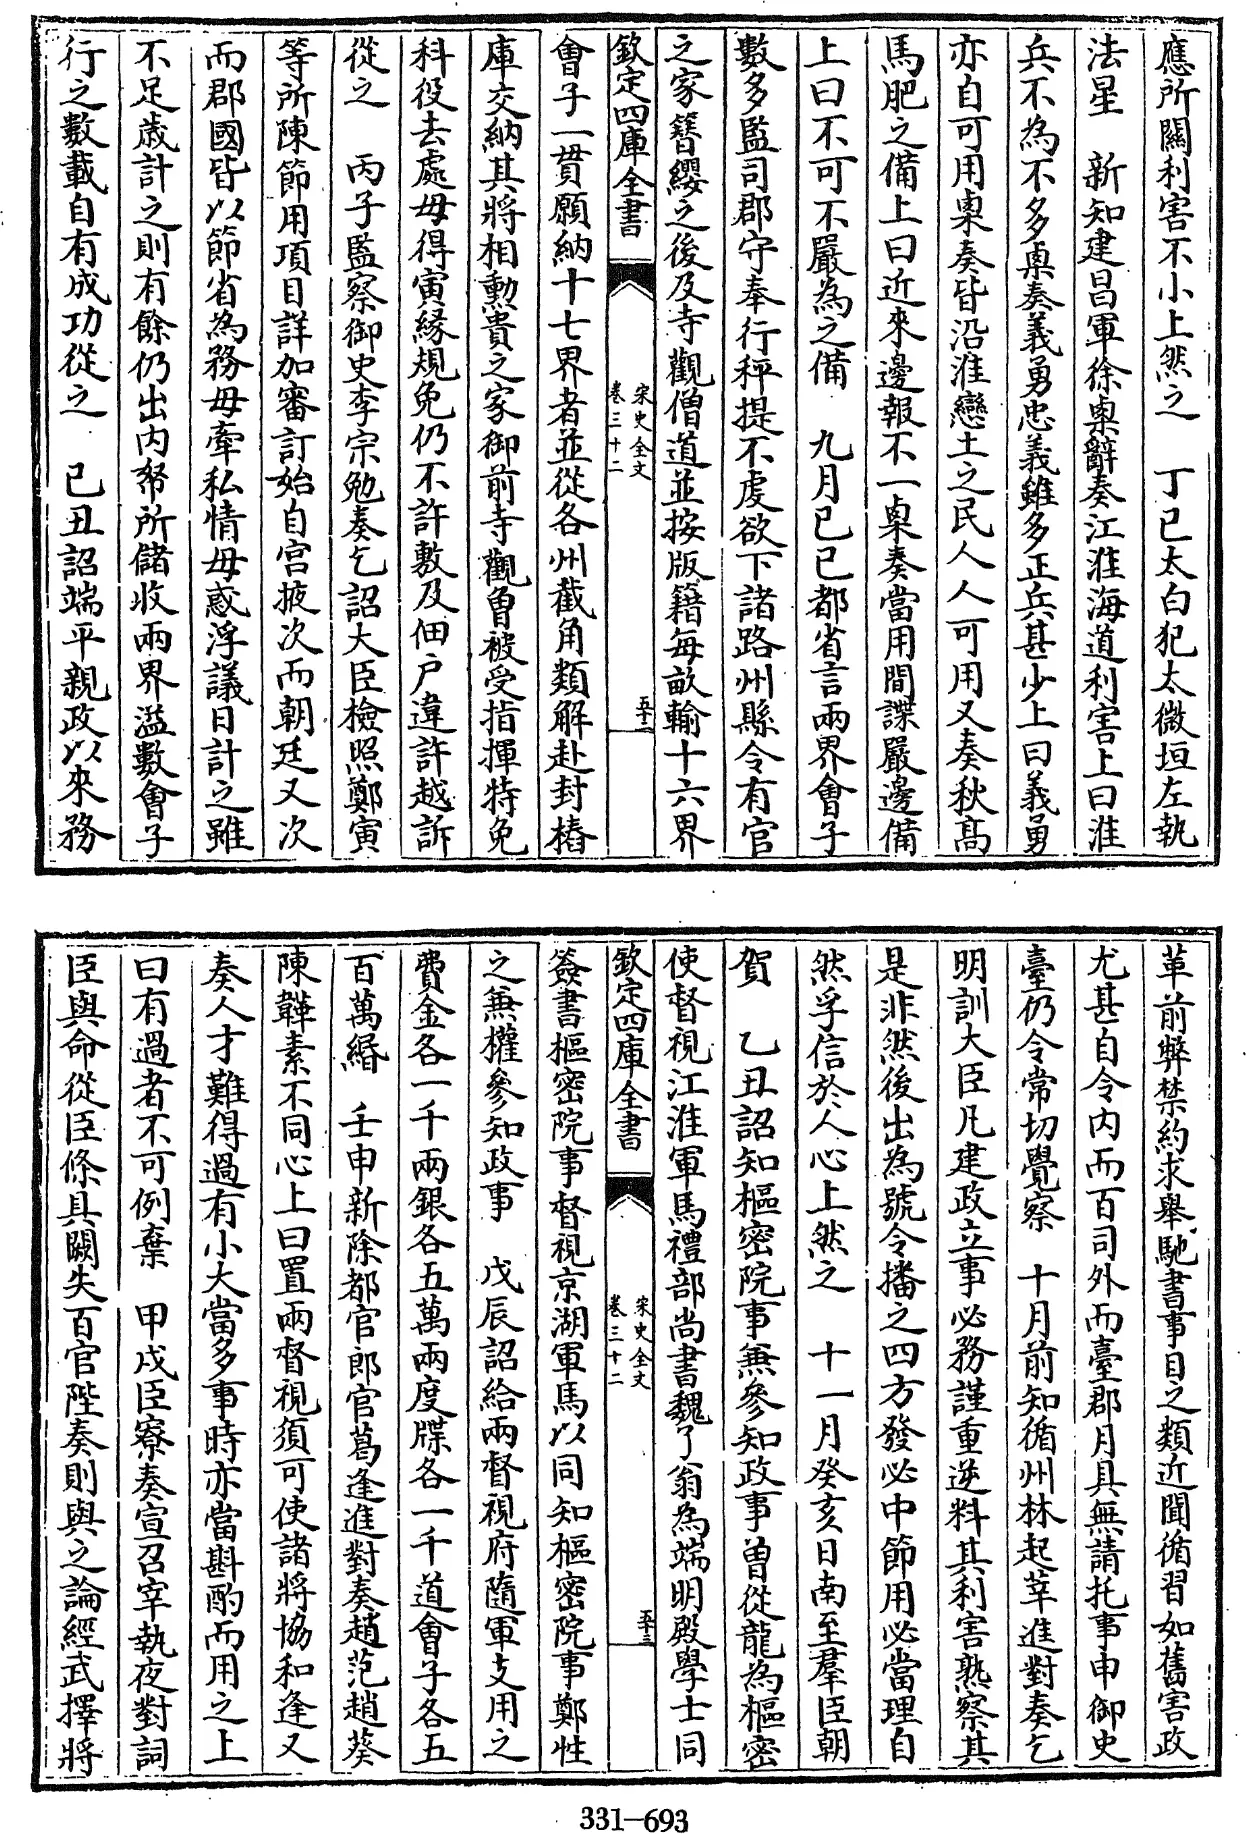 應所關利害不小上然之　丁巳太白犯太微垣左執
法星　新知建昌軍徐㮚辭奏江淮海道利害上曰淮
兵不為不多㮚奏義勇忠義雖多正兵甚少上曰義勇
亦自可用㮚奏皆沿淮戀土之民人人可用又奏秋髙
馬肥之備上曰近來邊報不一㮚奏當用間諜嚴邊備
上曰不可不嚴為之備　九月己巳都省言兩界會子
數多監司郡守奉行秤提不䖍欲下諸路州縣令有官
之家簪纓之後及寺觀僧道並按版籍每畝輸十六界
欽定四庫全書
宋史全文
卷三十二
五十二
會子一貫願納十七界者並從各州截角類解赴封樁
庫交納其將相勲貴之家御前寺觀曾被受指揮特免
科役去處毋得寅緣規免仍不許敷及佃戸違許越訴
從之　丙子監察御史李宗勉奏乞詔大臣檢照鄭寅
等所陳節用項目詳加審訂始自宫掖次而朝廷又次
而郡國皆以節省為務毋牽私情毋惑浮議日計之雖
不足歲計之則有餘仍出内帑所儲收兩界溢數會子
行之數載自有成功從之　己丑詔端平親政以來務
革前弊禁約求舉馳書事目之類近聞循習如舊害政
尤甚自今内而百司外而臺郡月具無請托事申御史
臺仍令常切覺察　十月前知循州林起莘進對奏乞
明訓大臣凡建政立事必務謹重逆料其利害熟察其
是非然後出為號令播之四方發必中節用必當理自
然孚信於人心上然之　十一月癸亥日南至羣臣朝
賀　乙丑詔知樞密院事兼參知政事曾從龍為樞密
使督視江淮軍馬禮部尚書魏了翁為端明殿學士同
欽定四庫全書
宋史全文
卷三十二
五十三
簽書樞密院事督視京湖軍馬以同知樞密院事鄭性
之兼權參知政事　戊辰詔給兩督視府隨軍支用之
費金各一千兩銀各五萬兩度牒各一千道會子各五
百萬緡　壬申新除都官郎官葛逢進對奏趙范趙葵
陳韡素不同心上曰置兩督視須可使諸將協和逢又
奏人才難得過有小大當多事時亦當斟酌而用之上
曰有過者不可例棄　甲戌臣寮奏宣召宰執夜對詞
臣與命從臣條具闕失百官陛奏則與之論經武擇將
331-693